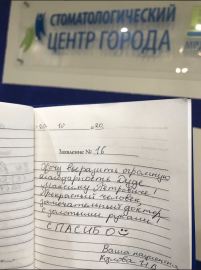 СТОМАТОЛОГИЧЕСКИЙ
ЦЕНТР ГОРОДА
20 10 20
Заявление № 16
Хочу выразить огромную
благодарность Дуде
Максиму Петровичу!
Прекрасный человек,
замечательный доктор
с золотыми руками.
СПАСИБО☺
Ваша пациентка
Козлова Н.А.